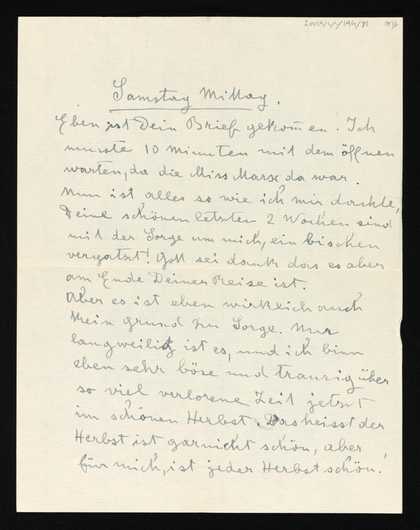 Samstag Mittag.
Eben ist Dein Brief gekommen. Ich
musste 10 Minuten mit dem öffnen
warten, da die Miss Marx da war.
Nun ist alles so wie ich mir dachte,
Deine schönen letzten 2 Wochen sind
mit der Sorge um mich, ein bischen
verpatzt! Gott sei dank das es aber
am Ende Deiner Reise ist.
Aber es ist eben wirklich auch
kein Grund zu Sorge. Nur
langweilig ist es, und ich binn
eben sehr böse und traurig über
so viel verlorene Zeit jetzt
im schönen Herbst. Das heisst der
Herbst ist garnicht schön, aber
für mich, ist jeder Herbst schön.